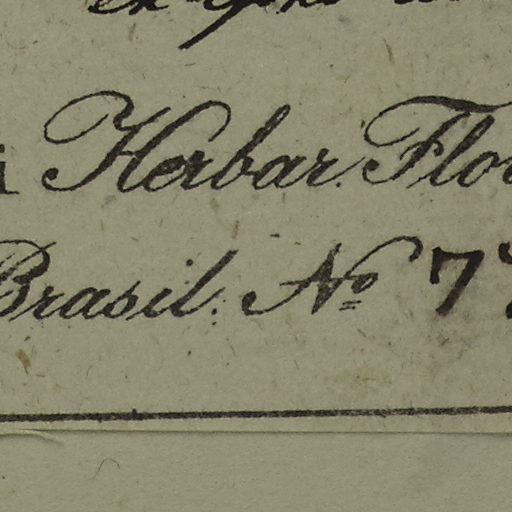 i Herbar. Flo
Brasil. No 7